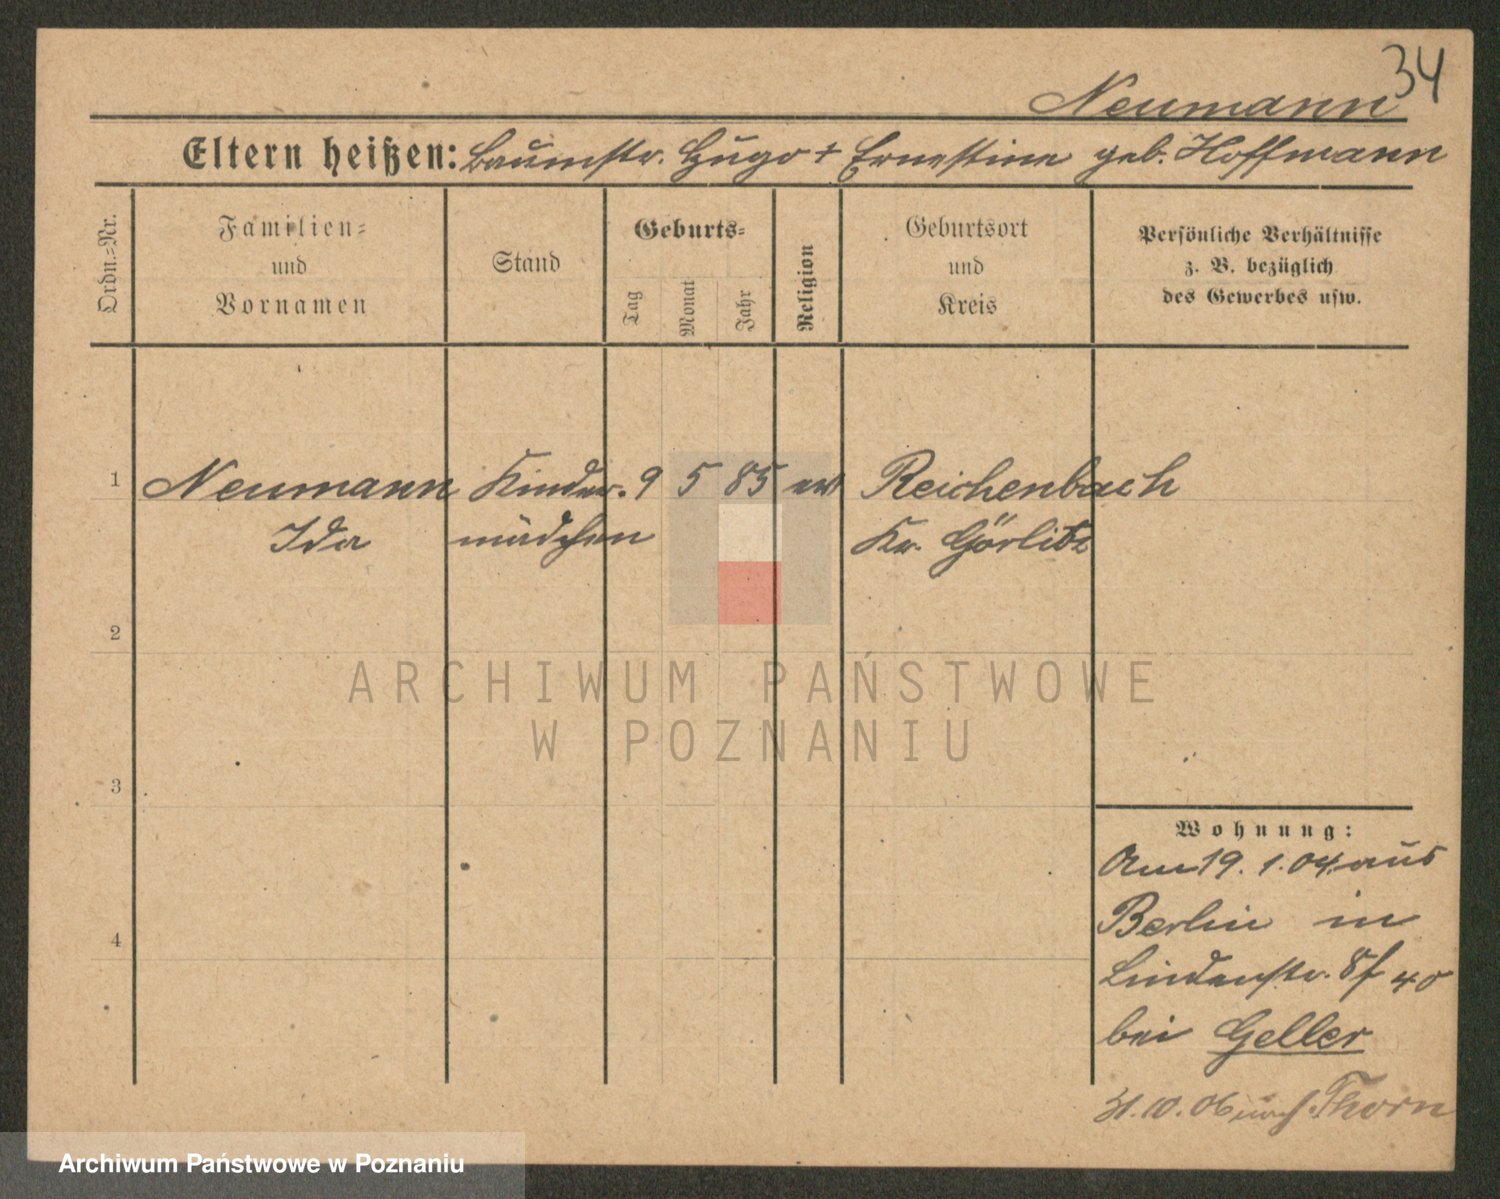 34
Neumann
Eltern heißen: Baumstr. Hugo + Ernestine geb. Hoffmann
Ordn.=Nr.
Familien=
und
Vornamen
Stand
Geburts=
Tag
Monat
Jahr
Religion
Geburtsort
und
Kreis
Persönliche Verhältnisse
z. B. bezüglich
des Gewerbes usw.
1 Neumann Kinder- 9 5 85 ev Reichenbach
Ida mädchen Kr. Görlitz
2
ARCHIWUM PAŃSTWOWE
W POZNANIU
3
Wohnung:
Am 19. 1. 04 aus
Berlin in
Lindenstr. 8
4
bei Geller
31.10.06 nach Thorn
Archiwum Państwowe w Poznaniu